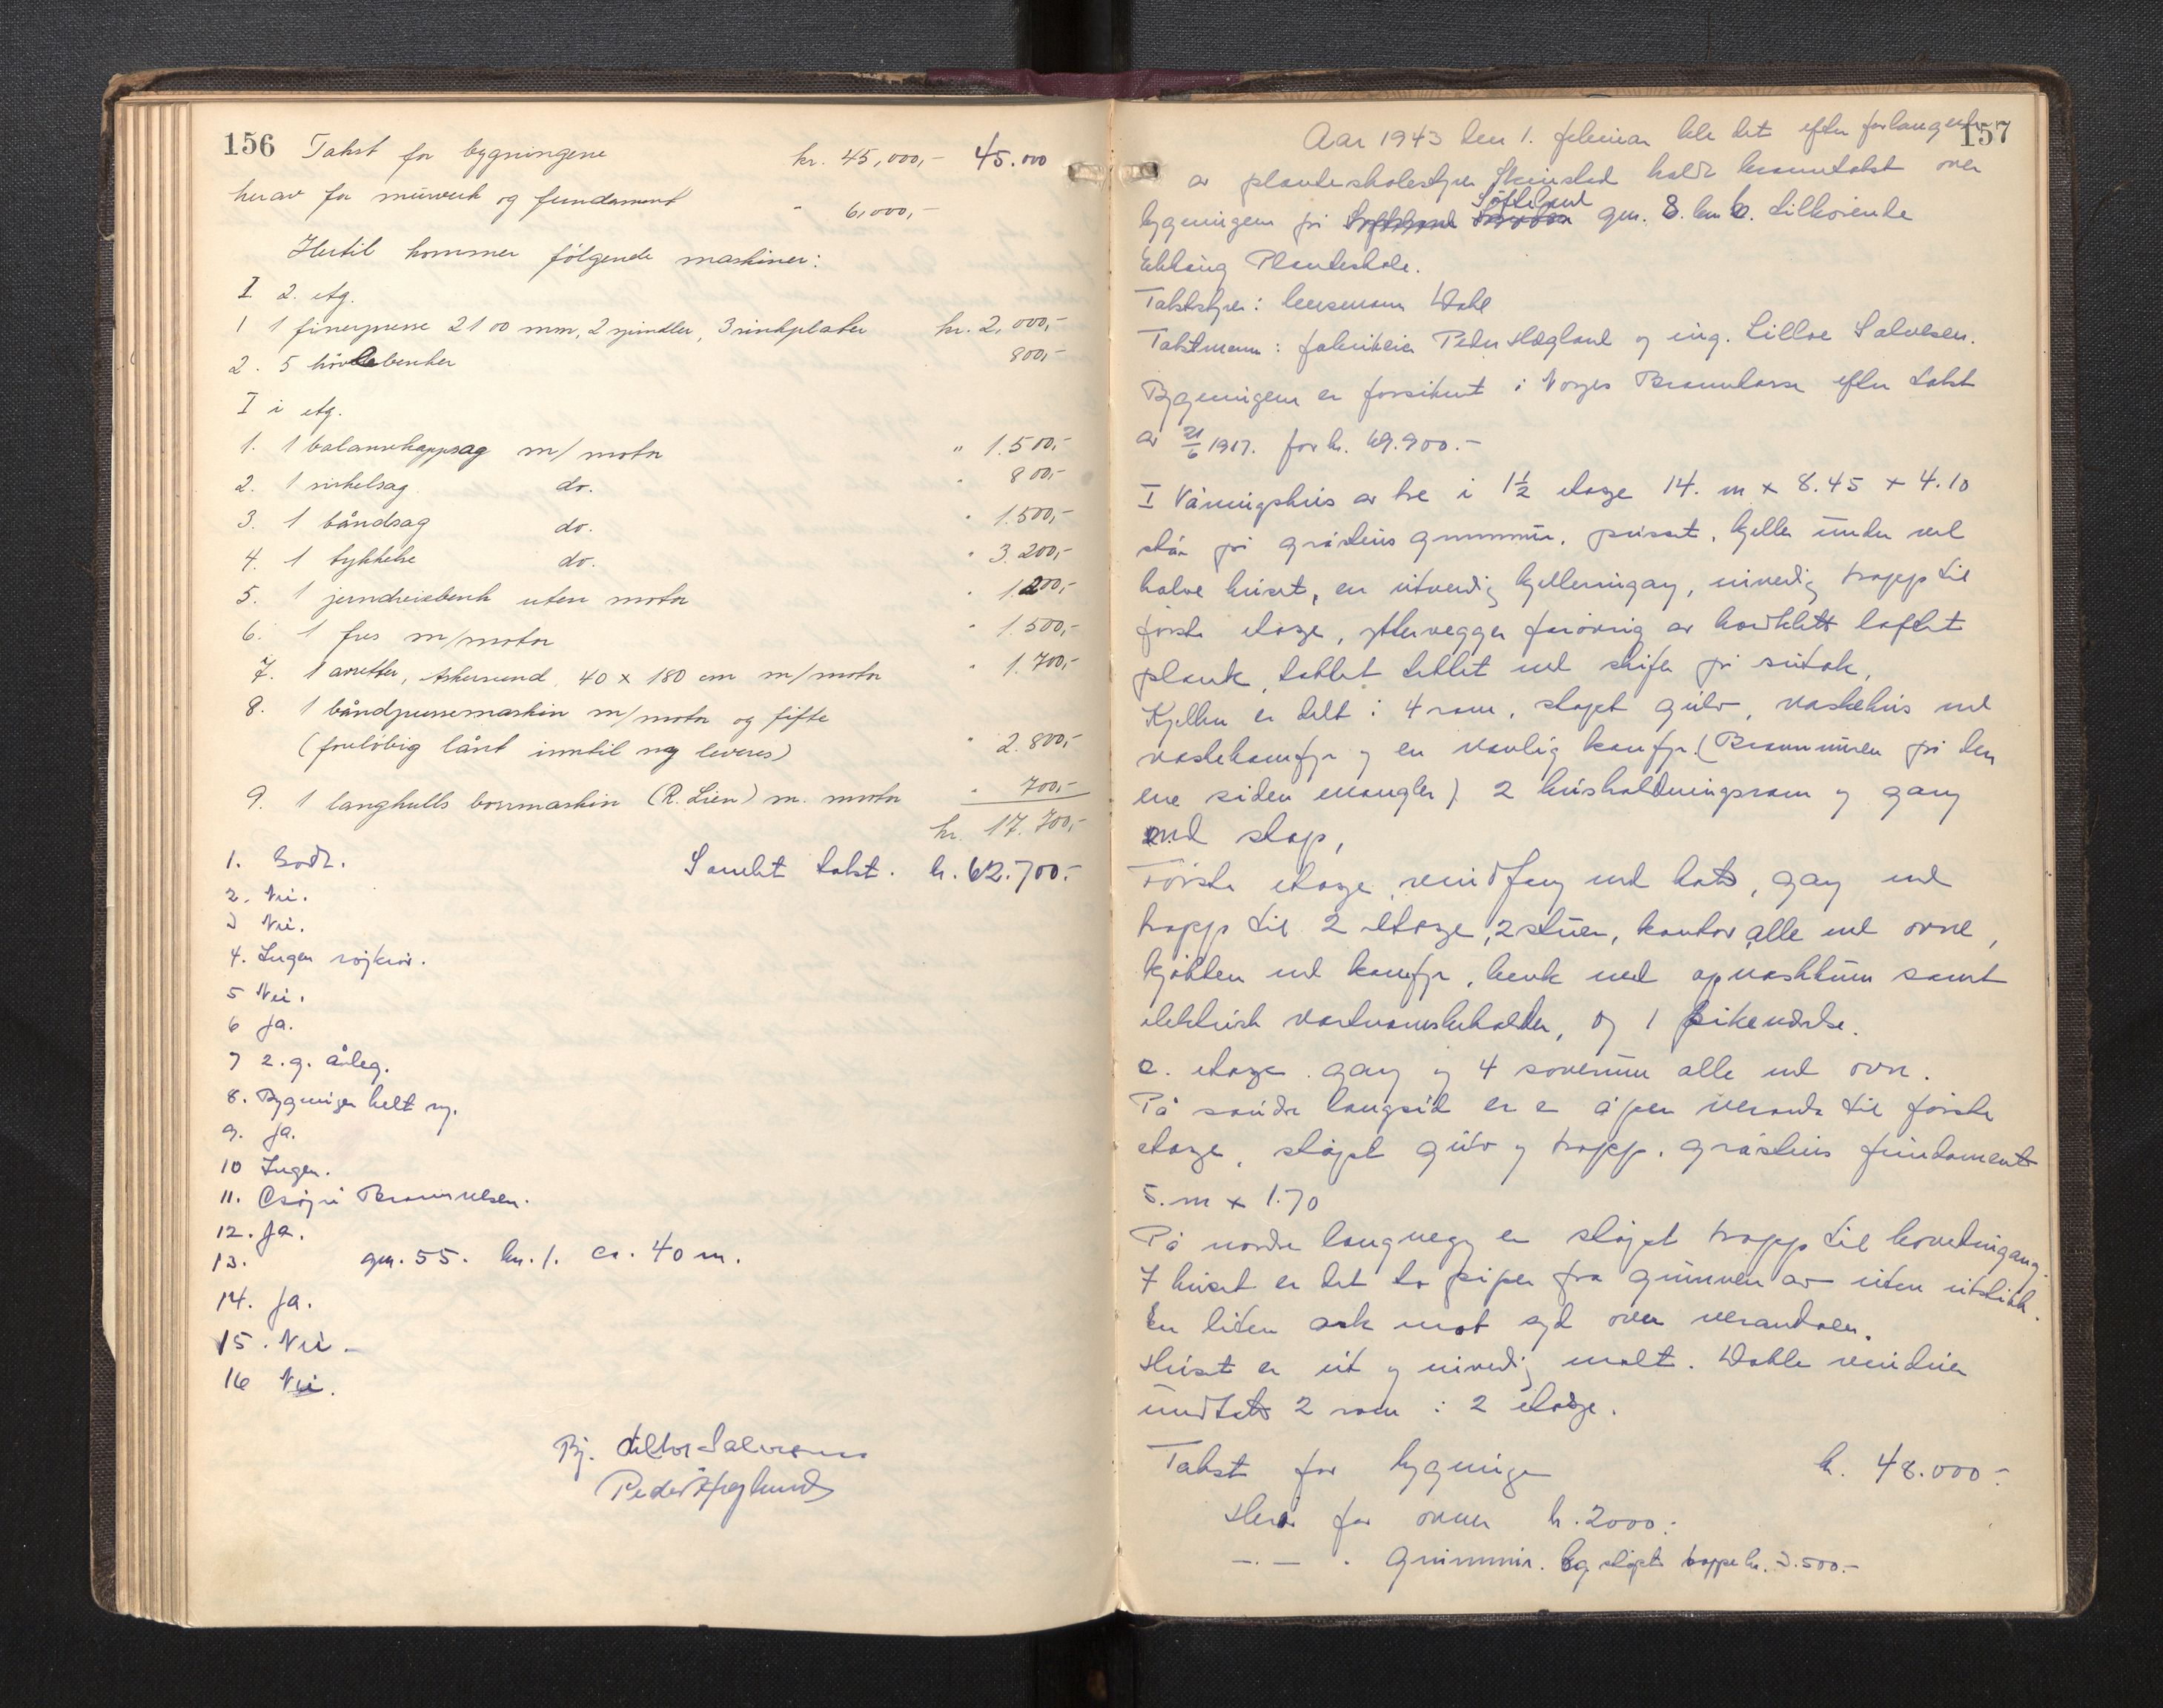 156 Takst for bygningene kr. 45,000,- 45.000
herav for murverk og fundament " 6,000,-
Hertil kommer følgende maskiner:
I 2. etg.
1 1 finerpresse 2100 mm, 2 spindler, 3 sinkplater kr. 2,000,-
2. 5 hövlebenker 800,-
I i etg.
1. 1 balansekappsag m/ motor " 1.500,-
2. 1 sirkelsag do. " 800,-
3. 1 båndsag do. " 1.500,-
4. 1 tykkelse do. " 3.200,-
5. 1 jerndreiebenk uten motor " 1.200,-
6. 1 fres m/motor " 1.500,-
7. 1 avretter, Askersund, 40 x 180 cm m/motor " 1.700,-
8. 1 båndpussemaskin m/motor og fifte
(foreløbig lånt inntil ny leveres) " 2.800,-
9. 1 langhulls borrmaskin (R. Lien) m. motor " 700,-
kr. 17.700,-
1. Godt. Samlet takst. kr. 62.700.-
2. Nei.
3 Nei.
4. Ingen røjkrør.
5 Nei.
6 Ja.
7 2.g. årleg.
8. Bygningen helt ny.
9. Ja.
10 Ingen.
11. Brannvesen.
12. Ja.
13. gnr. 55. bn. 1. ca. 40 m.
14. Ja.
15. Nei.
16 Nei.
Bj. Lilloe Salvesen
Peder Høgland
Aar 1943 den 1. februar ble det efter forlangende 157
av planteskolestyrer holdt branntakst over
bygningen på Søfteland gnr. 8. bnr 6. tilhørende
Planteskole.
Takststyrer: lensmann Dahl
Takstmenn: fabrikeier Peder Høgland og ing. Lilloe Salvesen.
Bygningen er forsikret i Norges Brannkasse efter takst
av 21/6 1917. for kr. 49.900.-
I Våningshus av tre i 1½ etage 14. m x 8.45 x 4.10
står på gråsteins grunnmur, pusset, kjeller under vel
halve huset, en utvendig kjellerningang, invendig trapp til
første etage, yttervegger forøvrig av bordkledt laftet
plank, taket tekket med skifer på sutak,
Kjelleren er delt i 4 rom, støpt gulv, vaskehus med
vaskekomfyr og en vanlig komfyr. (Brannmuren på den
ene siden mangler) 2 husholdningsrom og gang
med skap,
Første etage vindfang med , gang med
trapp til 2 etage, 2 stuer, kontor alle med ovne,
kjøkken med komfyr, benk med opvaskkum samt
elektrisk varmtvannsbeholder, og 1 pikeværelse.
2. etage gang og 4 soverum alle med ovn.
På søndre langside er en åpen veranda til første
etage, støpt gulv og trapp. gråsteins fundament
5. m x 1.70
På nordre langvegg en støpt trapp til hovedingang.
I huset er det to piper fra grunnen av uten utstikk.
En liten ark mot syd over verandaen.
Huset er ut og invendig malt. Doble vinduer
undtatt 2 rom i 2 etage.
Takst for bygningen kr. 48.000.-
Herav for ovner kr. 2000.-
-.- " grunnmur. og støpt trappe kr. 3.500.-